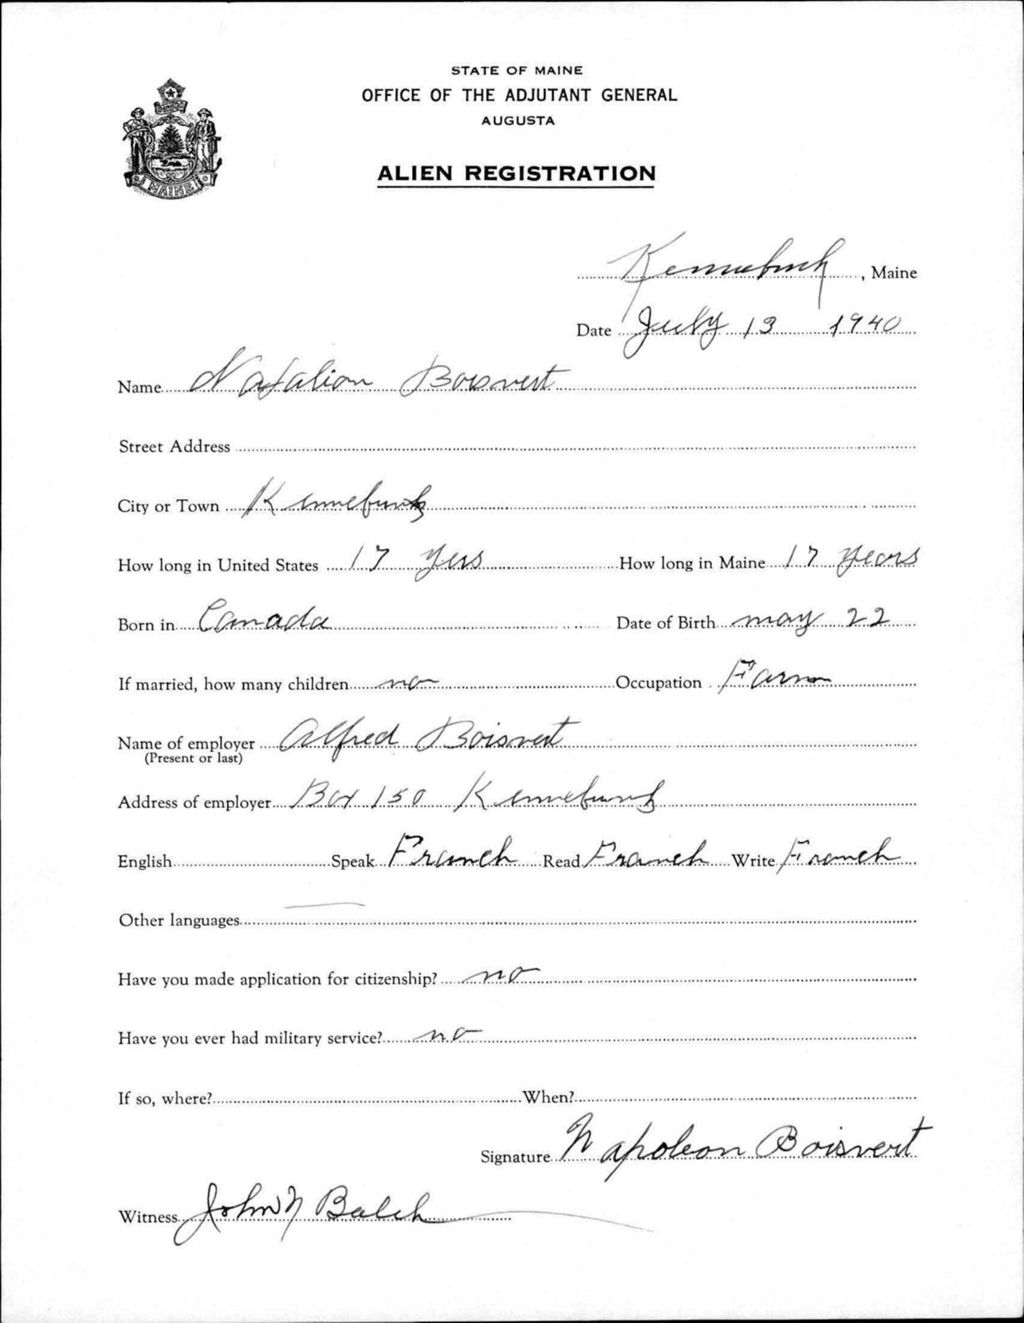 STATE OF MAINE
OFFICE OF THE ADJUTANT GENERAL
AUGUSTA
ALIEN REGISTRATION
MAINE
Kennebunk, Maine
Date July 13 1940
Name Nafalion Boisvert
Street Address
City or Town Kennebunk
How long in United States 17 yers How long in Maine 17 years
Born in Canada Date of Birth may 22
If married, how many children no Occupation Farm
Name of employer Alfred Boisvert
(Present or last)
Address of employer Box 150 Kennebunk
English Speak French Read French Write French
Other languages
Have you made application for citizenship? no
Have you ever had military service? no
If so, where? When?
Signature Napoleon Boisvert
Witness John N Balch